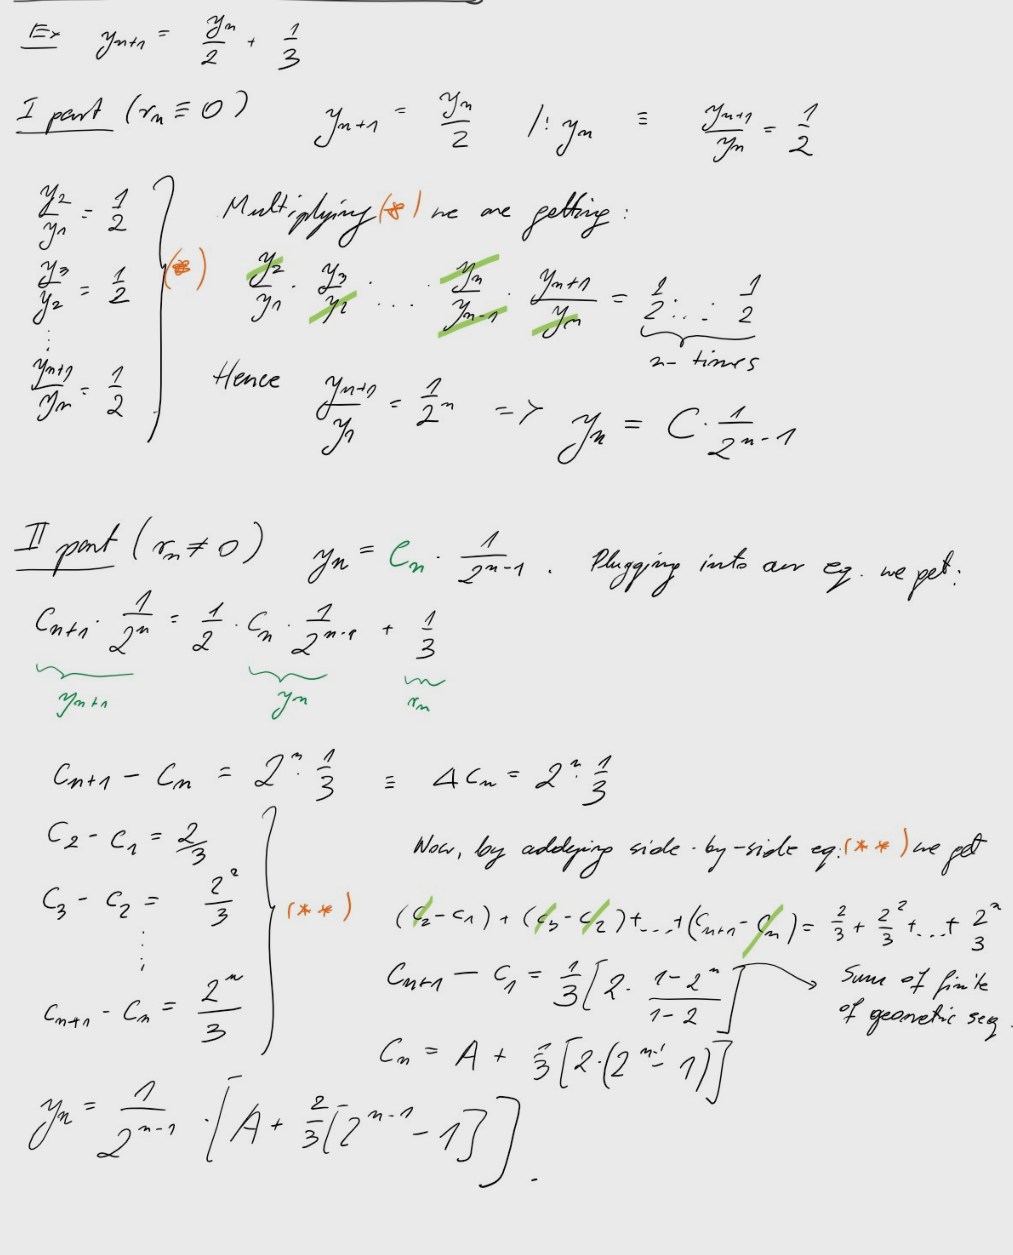 Ex y_{n+1} = \frac{y_n}{2} + \frac{1}{3}
I part (r_n ≡ 0) y_{n+1} = \frac{y_n}{2} /: y_n ≡ \frac{y_{n+1}}{y_n} = \frac{1}{2}
\frac{y_2}{y_1} = \frac{1}{2}
\frac{y_3}{y_2} = \frac{1}{2}
⋮
\frac{y_{n+1}}{y_n} = \frac{1}{2}
(*)
Multiplying (*) we are getting:
\frac{y_2}{y_1} · \frac{y_3}{y_2} · ... · \frac{y_n}{y_{n-1}} · \frac{y_{n+1}}{y_n} = \frac{1}{2} · ... · \frac{1}{2}
n-times
Hence \frac{y_{n+1}}{y_1} = \frac{1}{2^n} => y_n = C · \frac{1}{2^{n-1}}
II part (r_n ≠ 0) y_n = C_n · \frac{1}{2^{n-1}} . Plugging into our eq. we get:
C_{n+1} · \frac{1}{2^n} = \frac{1}{2} · C_n · \frac{1}{2^{n-1}} + \frac{1}{3}
y_{n+1} y_n r_n
C_{n+1} - C_n = 2^n · \frac{1}{3} ≡ ΔC_n = 2^n · \frac{1}{3}
C_2 - C_1 = \frac{2}{3}
C_3 - C_2 = \frac{2^2}{3}
⋮
C_{n+1} - C_n = \frac{2^n}{3}
(**)
Now, by addying side-by-side eq. (**) we get
(C_2 - C_1) + (C_3 - C_2) + ... + (C_{n+1} - C_n) = \frac{2}{3} + \frac{2^2}{3} + ... + \frac{2^n}{3}
C_{n+1} - C_1 = \frac{1}{3} [2 · \frac{1-2^n}{1-2}]
Sum of finite
of geometric seq.
C_n = A + \frac{1}{3} [2·(2^{n-1} - 1)]
y_n = \frac{1}{2^{n-1}} · [A + \frac{2}{3} [2^{n-1} - 1]] .